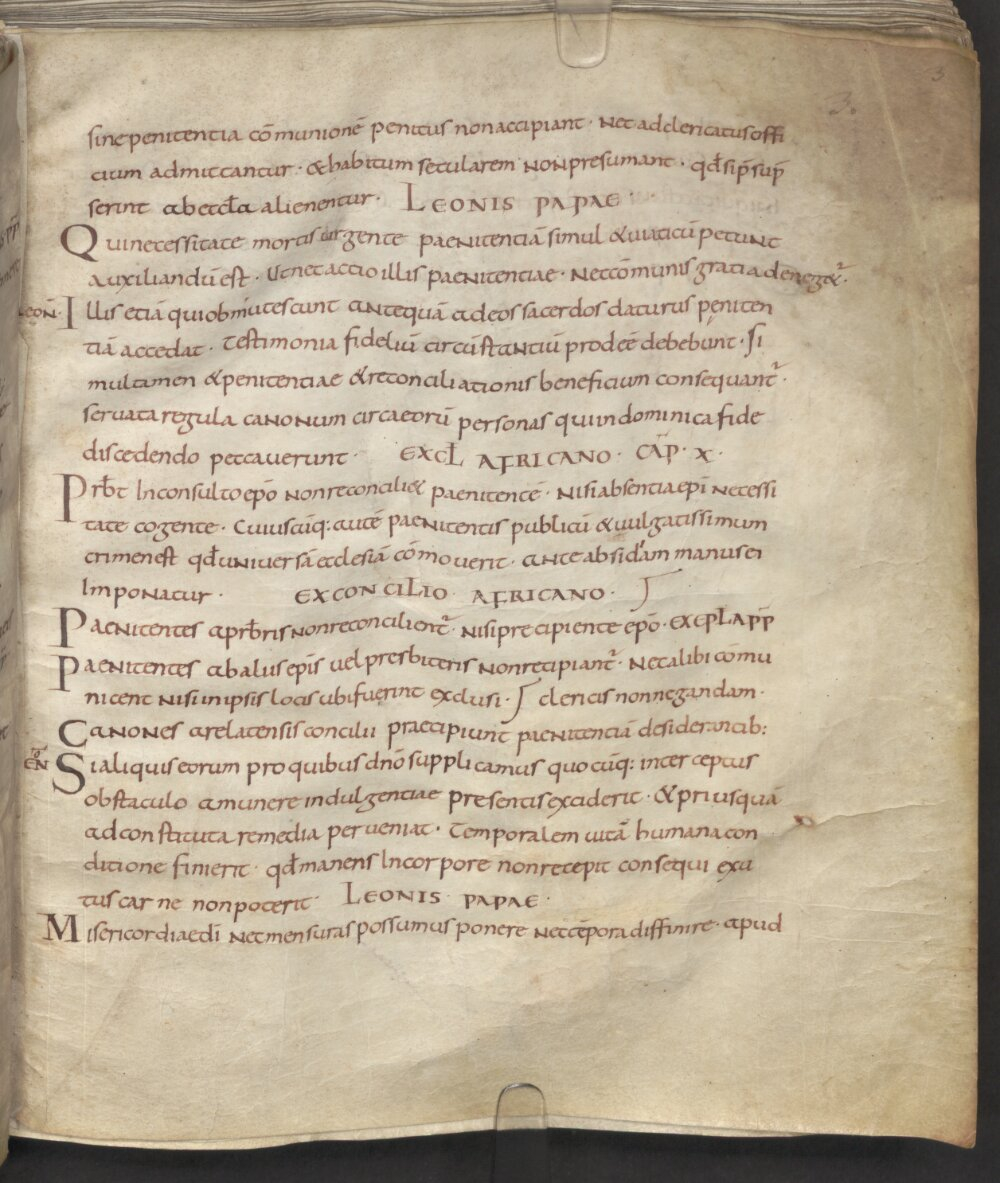 3
3.
sine penitentia cōmunionē penitus non accipiant · Nec ad clericatus offi
cium admittantur · & habitum secularem non presumant · qd̄ si p̄sup̄
serint ab eccl̄a alienentur · LEONIS PAPAE ·
Qui necessitate mortis urgente paenitentiā simul & uiaticū petunt
auxiliandū est · Ut nec actio illis paenitentiae · Nec cōmunis gratia deneget̃ ·
LEON· Illis etiā qui obmutescunt antequā ad eos sacerdos daturus peniten
tiā accedat · Testimonia fideliū circūstantiū prodeē debebunt · Si
mul tamen & penitentiae & reconciliationis beneficium consequant̃ ·
seruata regula canonum circa eorū personas qui in dominica fide
discedendo peccauerunt · EX CL̄ AFRICANO · CAP̄ · X ·
Prb̄t Inconsulto ep̄o non reconcili& paenitentē · Nisi absentia ep̄i necessi
tate cogente · Cuiuscūq: autē paenitentis publicū & uulgatissimum
crimen est qd̄ uniuersā ecclesiā cōmouerit · ante absidam manus ei
Imponatur · EX CONCILIO AFRICANO ·
Paenitentes a prb̄ris non reconcilient̃ · nisi precipiente ep̄o · EX CPL APP̄
Paenitentes ab aliis ep̄is uel presbiteris non recipiant̃ · Nec alibi cōmu
nicent nisi in ipsis locis ubi fuerint exclusi · clericis non negandam ·
Canones arelatensis concilii praecipiunt paenitentiā desiderantib:
Si aliquis eorum pro quibus dn̄o supplicamus quocūq: interceptus
obstaculo a munere indulgentiae presentis exciderit · & priusquā
ad constituta remedia perueniat · Temporalem uitā humana con
ditione finierit · qd̄ manens In corpore non recepit consequi exu
tus carne non poterit LEONIS PAPAE ·
Misericordiae dī nec mensuras possumus ponere nec tēpora diffinire · apud